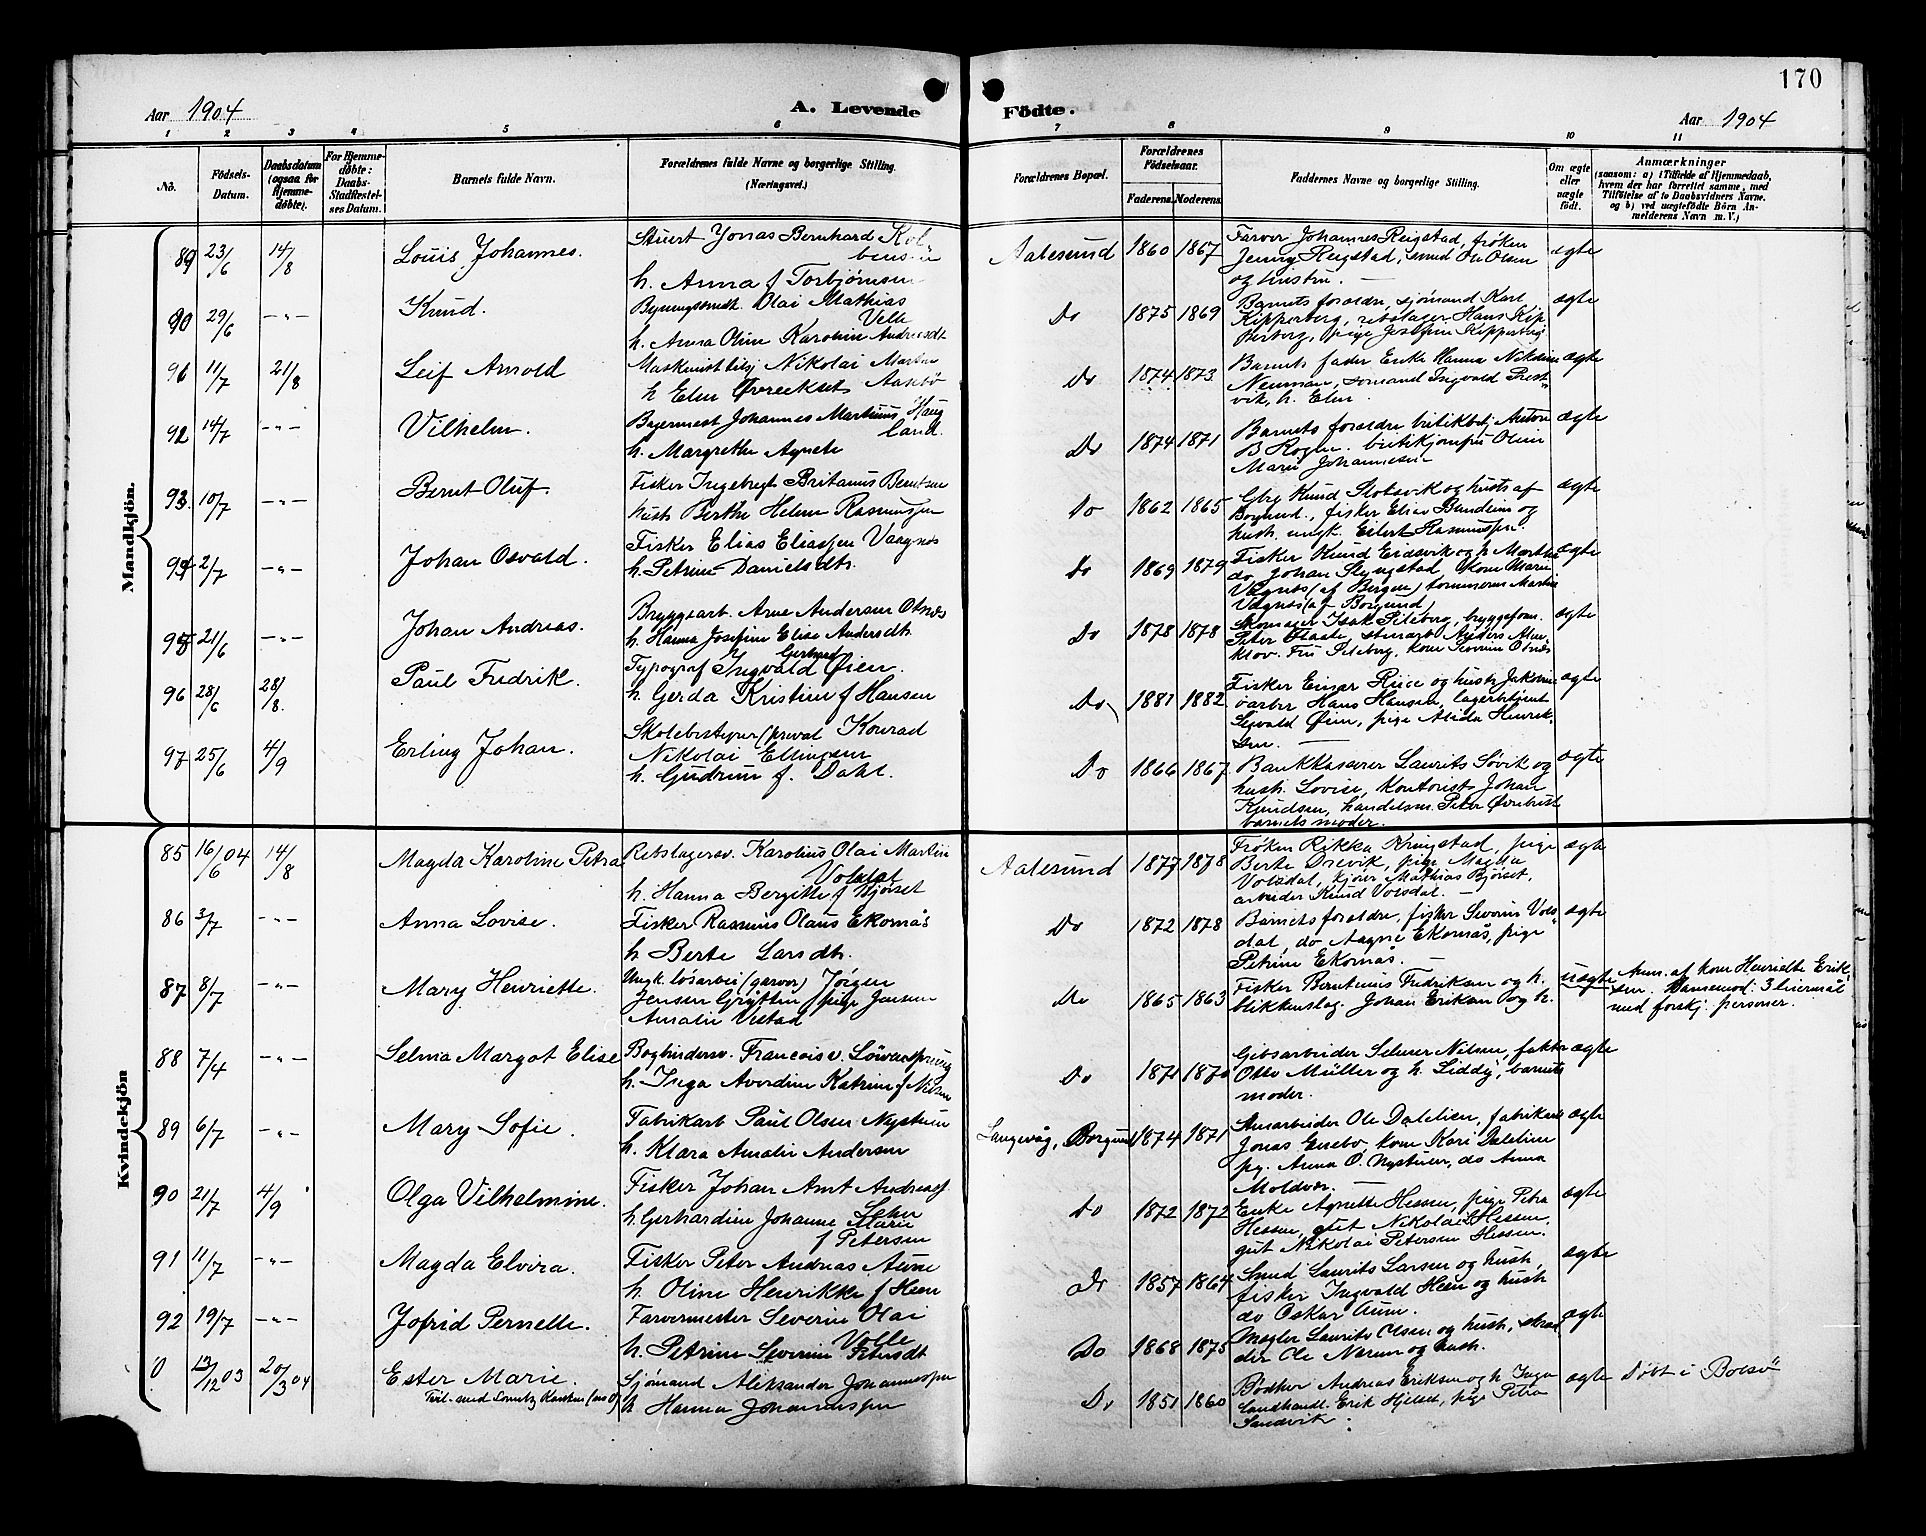 170
Aar 1904
A. Levende Födte.
Aar 1904
1 2 3 4 5 6 7 8 9 10 11
No.
Födsels-Datum.
Daabsdatum (ogsaa for Hjemme-døbte).
For Hjemme-døbte: Daabs-Stadfæstel-ses Datum.
Barnets fulde Navn.
Forældrenes fulde Navne og borgerlige Stilling. (Næringsvei.)
Forældrenes Bopæl.
Forældrenes Födselsaar.
Faderens. Moderens.
Faddernes Navne og borgerlige Stilling.
Om ægte eller uægte født.
Anmærkninger
(saasom: a) i Tilfælde af Hjemmedaab,
hvem der har forrettet samme, med
Tilføielse af to Daabsvidners Navne.
og b) ved uægtefødte Börn An-
melderens Navn m. V.)
Mandkjön.
89 23/6 14/8 Louis Johannes. Stuert Jonas Bernhard Kol-
bensen
h. Anna f Torbjørnsen
Aalesund 1860 1867 Farver Johannes Reigstad, frøken
Jenny Reigstad, smed Ole Olsen
og hustru. ægte
90 29/6 -"- Knud. Olai Mathias
Velle
h. Anna Oline Karoline Andreasdt
Do 1875 1869 Barnets forældre, sjømand Karl
Kipperberg, rebslager Hans Kip
perberg, pige Josefine Kipperberg ægte
91 11/7 21/8 Leif Arnold Maskinist Nikolai Martin
Aasebø
h Elen
Do 1874 1873 Barnets fader Enke Hanna Nilsen
Neuman, sømand Ingvald Brest-
vik, h. Elen. ægte
92 14/7 -"- Vilhelm. Bagermest Johannes Martinus Haug
land.
h. Margrethe Agnete
Do 1874 1871 Barnets forældre Anton
B Rogne. Oline
Marie Johannesen ægte
93 10/7 -"- Bernt Oluf. Fisker Ingebregt Britanus Berntsen
hust Berthe Helene Rasmussen
Do 1862 1865 Gbr Knud Slotsvik og hustr af
Borgund, fisker Elias Bendixen og
hust. ungk. Eilert Rasmussen. ægte
94 2/7 -"- Johan Osvald. Fisker Elias Eliassen Vaagnes
h. Petrine Danielsdtr.
Do 1869 1879 Fisker Knud Eidsvik og h Marthe
do Johan Slyngstad, kone Marie
Vågnes (af Bergen) tommerm Martin
Vågnes (af Borgund) ægte
95 21/6 -"- Johan Andreas. Bryggearb. Arne Andersen Otnes
h. Hanna Josefine Elise Andersdtr.
Do 1878 1878 Skomager Isak Pileberg, bryggeform.
Peter Flaate, stenarb Anders Alm-
klov. Fru Pileberg. kone Otnes ægte
96 28/6 28/8. Paul Fredrik. Typograf Ingvald Gerhard Øien.
h. Gerda Kristine f Hansen
Do 1881 1882 Fisker Einar Riise og hustr Jakobine
Hans Hansen, lagerbetjent
Sigvald Øien, pige Alida Henrik-
sen. ægte
97 25/6 4/9 Erling Johan. Skolebestyrer (privat Konrad
Nikolai Ellingsen
h. Gudrun f. Dahl.
Do 1866 1867 Bankkaserer Laurits Søvik og
hust. Lovise, kontorist Johan
Knudsen, handelsm. Peter
barnets moder. ægte
Kvindekjön
85 16/6 04 14/8 Magda Karoline Petra Rebslagersv. Karolius Olai Martin
Volsdal
h. Hanna Bergitte f Bjørset
Aalesund 1877 1878 Frøken Rikka Kringstad, pige
Berte Drevik, pige Magda
Volsdal, kjører Mathias Bjørset,
arbeider Knud Volsdal. ægte
86 3/7 -"- Anna Lovise. Fisker Rasmus Olaus Ekornås
h Berte Larsdtr.
Do 1872 1878 Barnets forældre, fisker Severin Vols
dal, do Aagne Ekornås, pige
Petrine Ekornås. ægte
87 8/7 -"- Mary Henriette. Ungk. løsarbei (garver) Jørgen
Jensen Grytten, pige Jensine
Amalie Vestad
Do 1865 1863 Fisker Berntinus Fredriksen og h.
blikkenslag. Johan Eriksen og h. uægte Anm. af kone Henriette Erik-
sen. Barnemod: 3 leiermål
med forskj. personer.
88 7/4 -"- Selma Margot Elise Bogbindersv. Francois v. Löwensprung
h. Inga Avordine Katrine f Nilsen
Do 1871 1870 Gibsarbeider Nilsen, faktor
Otto Müller og h. Liddy, barnets
moder. ægte
89 6/7 -"- Mary Sofie. Fabrikarb Paul Olsen Nystuen
h. Klara Amalie Andersen
Langevåg, Borgund 1874 1871 Stenarbeider Ole Dalelien, fabrikarb
Jonas Enebo, kone Kari Dalelien
pg. Anna O. Nystuen, do Anna
Moldvær. ægte
90 21/7 4/9 Olga Vilhelmine. Fisker Johan Arnt Andreas f.
h. Gerhardine Johanne Marie
f Petersen
Do 1872 1872 Enke Agnette Hessen, pige Petra
Hessen, gut Nikolai Hessen,
gut Nikolai Petersen Hessen. ægte
91 11/7 -"- Magda Elvira. Fisker Peter Andreas Aune
h. Oline Henrikke f Heen
Do 1857 1864 Smed Laurits Larsen og hust,
fisker Ingvald Heen og hust
do Oskar Aune. ægte
92 19/7 -"- Jofrid Pernelle. Farvermester Severin Olai
Velle
h. Petrine Severine Petersdt
Do 1868 1875 Mægler Laurits Olsen og hust, skræd
der Ole Nerem og hust. ægte
0 13/12 03 20/3 04 Ester Marie. Sjömand Aleksander Johannessen
h Hanna Johannessen
Do 1851 1860 Bødker Andreas Eriksen og h Inga
Landhandl. Erik Hjelset, pige Petra
Sandvik. ægte Døbt i Bolsø